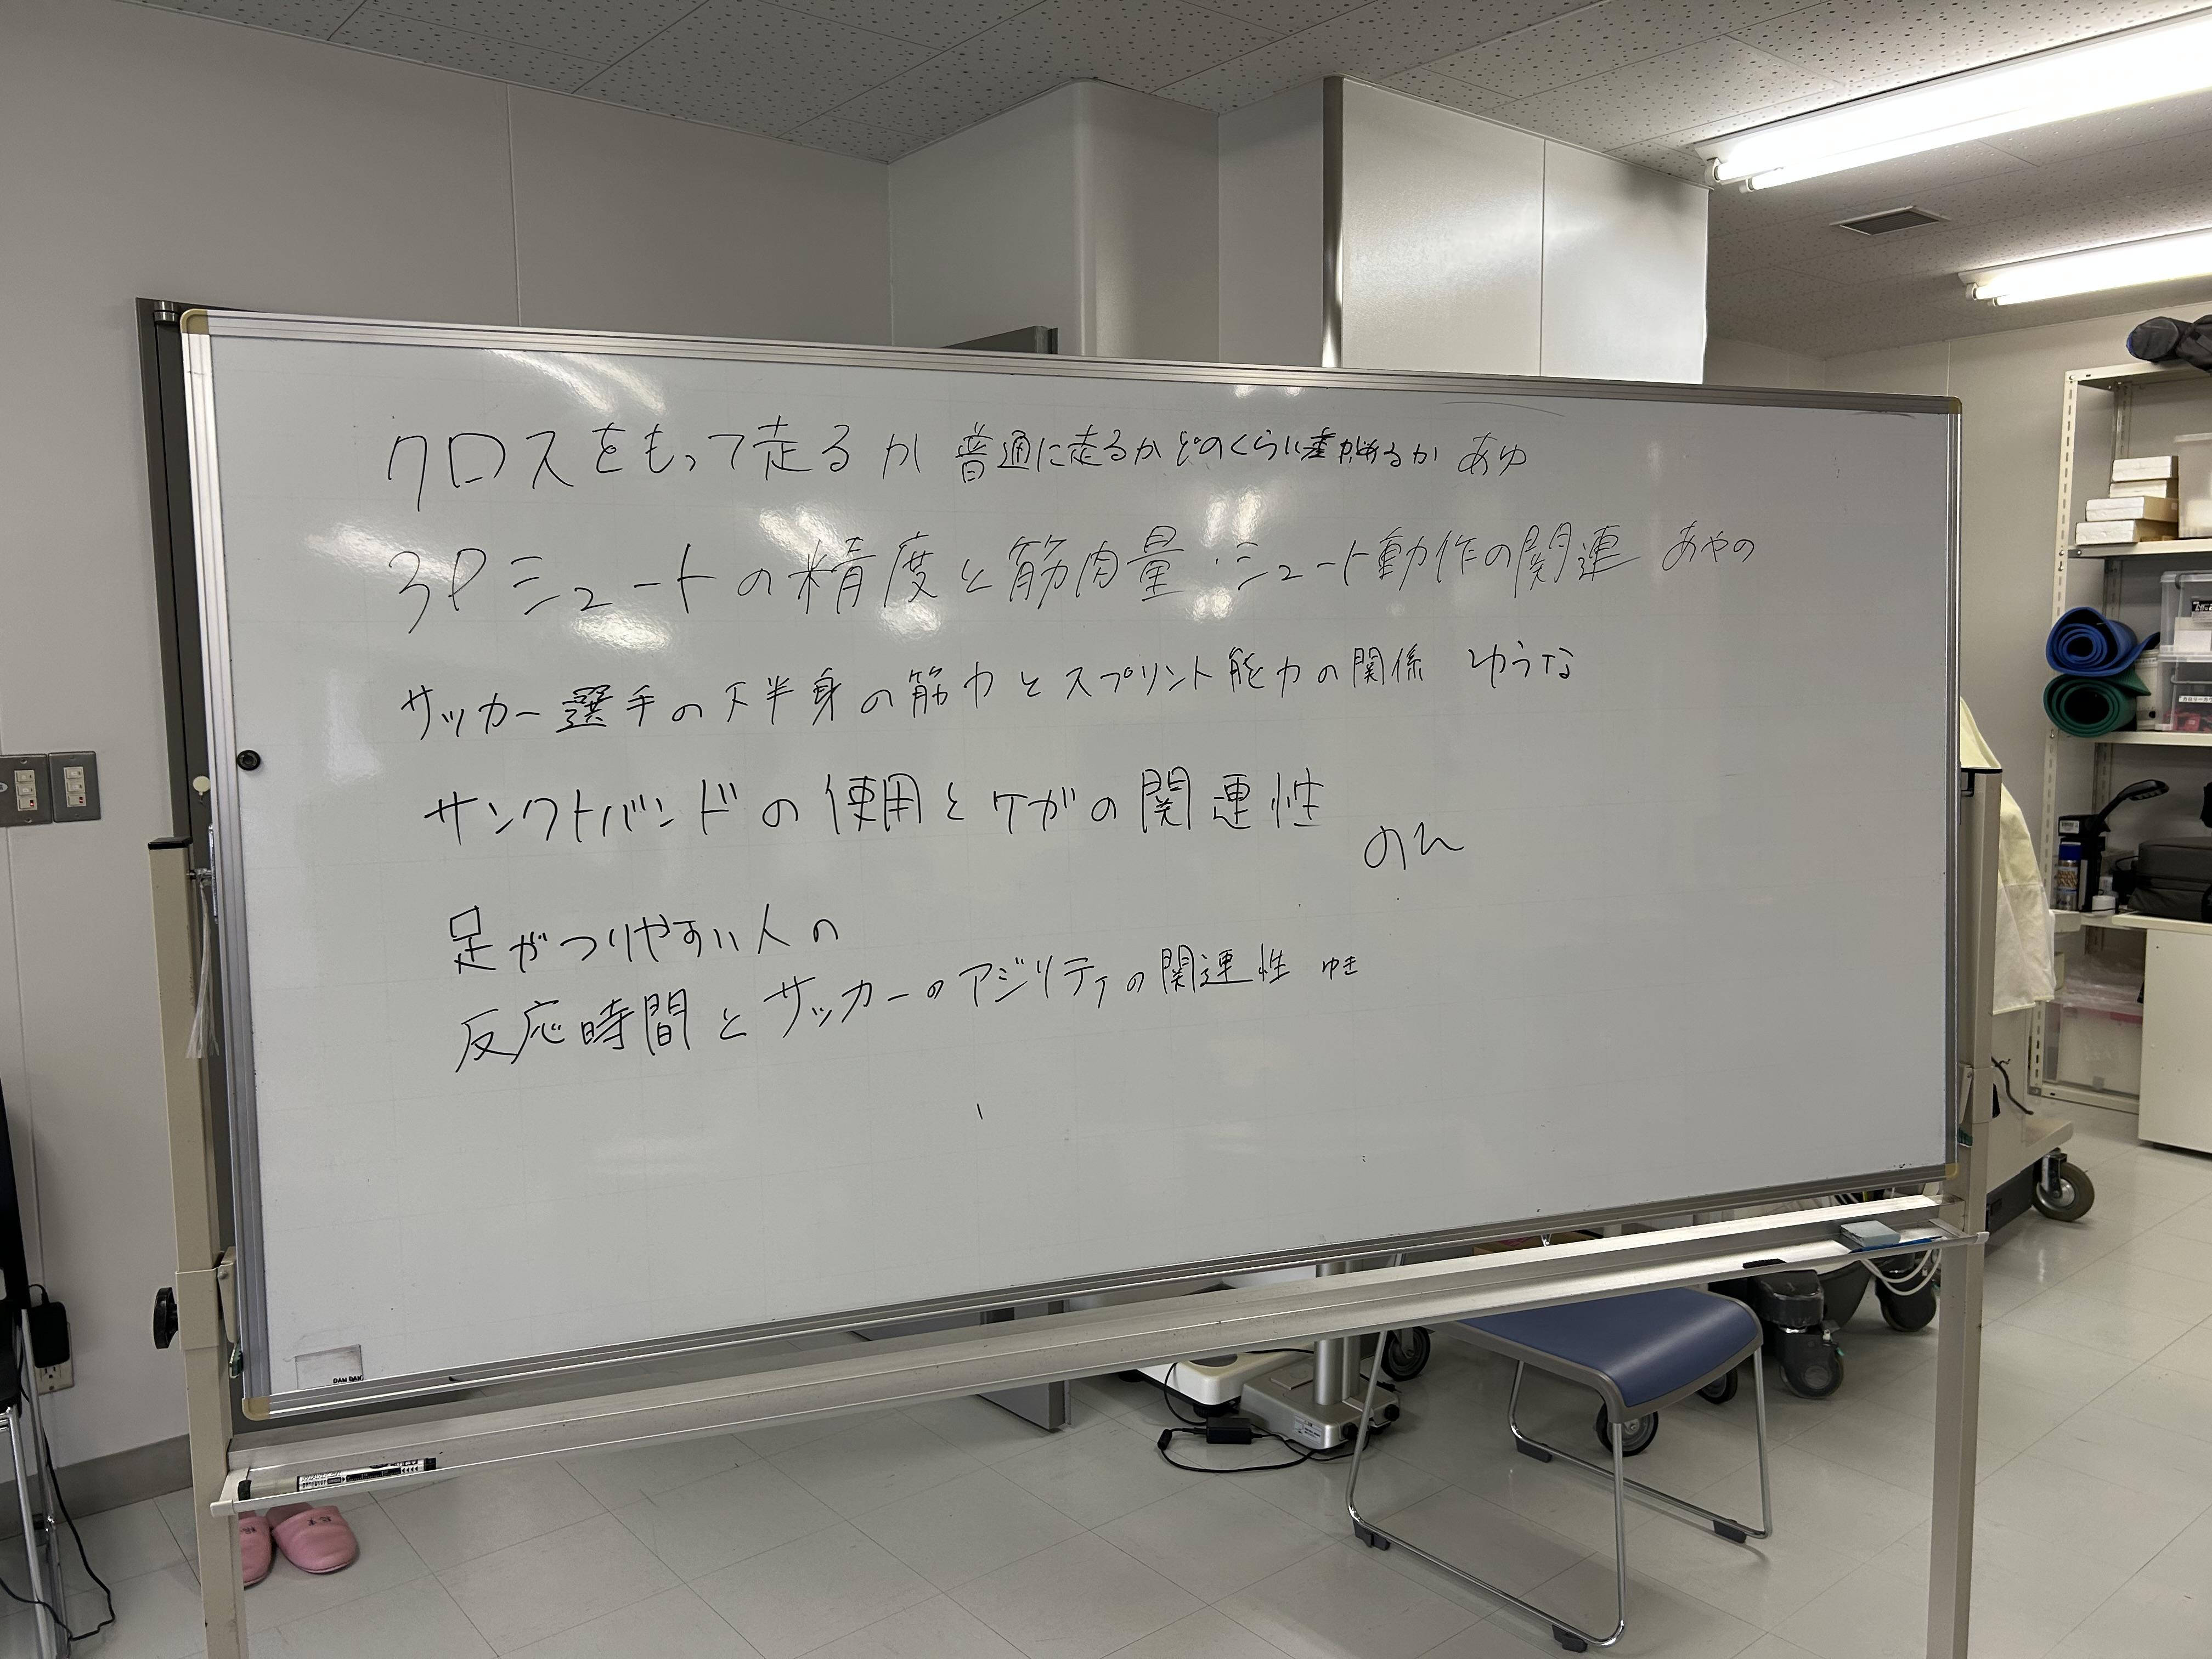 クロスをもって走るか 普通に走るかどのくらい差があるか あゆ
3Pシュートの精度と筋肉量・シュート動作の関連 あやの
サッカー選手の下半身の筋力とスプリント能力の関係 ゆうな
サンクトバンドの使用とケガの関連性
のん
足がつりやすい人の
反応時間とサッカーのアジリティの関連性 ゆき